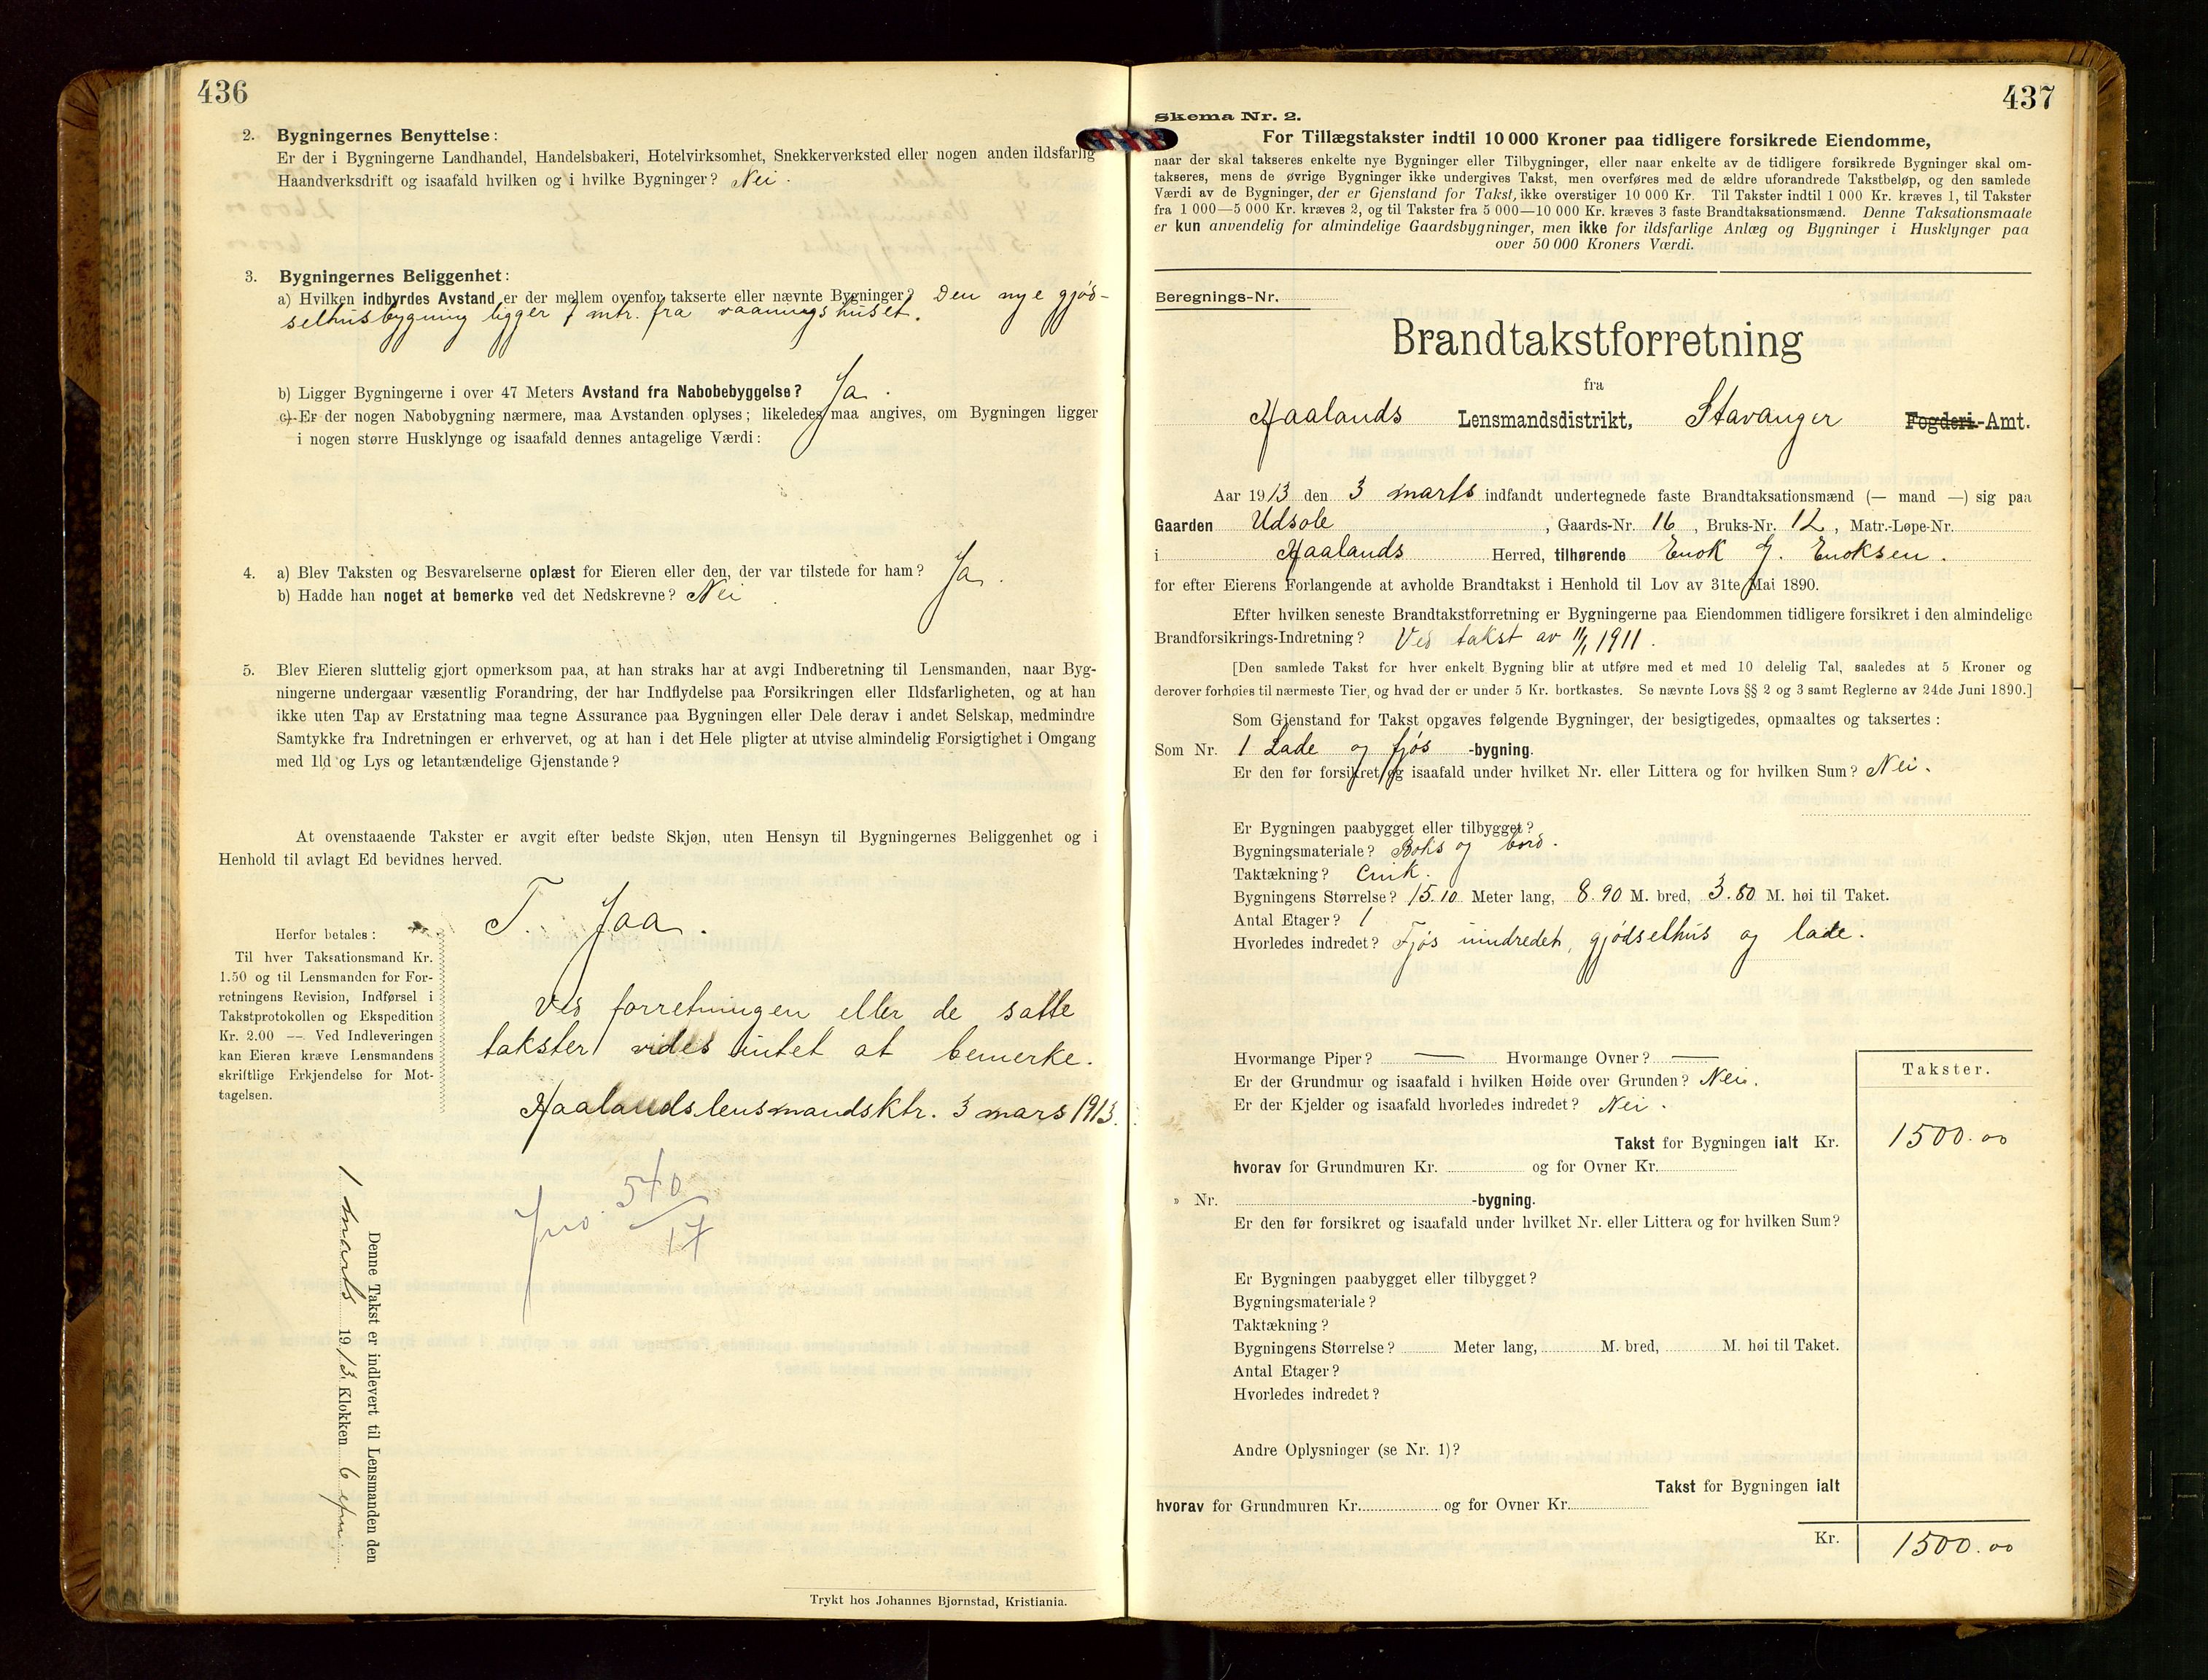 436
2. Bygningernes Benyttelse:
Er der i Bygningerne Landhandel, Handelsbakeri, Hotelvirksomhet, Snekkerverksted eller nogen anden ildsfarlig
Haandverksdrift og isaafald hvilken og i hvilke Bygninger? Nei.
3. Bygningernes Beliggenhet:
a) Hvilken indbyrdes Avstand er der mellem ovenfor takserte eller nævnte Bygninger? Den nye gjød-
selhusbygning ligger 7 mtr. fra vaaningshuset.
b) Ligger Bygningerne i over 47 Meters Avstand fra Nabobebyggelse? Ja.
c) Er der nogen Nabobygning nærmere, maa Avstanden oplyses; likeledes maa angives, om Bygningen ligger
i nogen større Husklynge og isaafald dennes antagelige Værdi:
4. a) Blev Taksten og Besvarelserne oplæst for Eieren eller den, der var tilstede for ham? Ja.
b) Hadde han noget at bemerke ved det Nedskrevne? Nei
5. Blev Eieren sluttelig gjort opmerksom paa, at han straks har at avgi Indberetning til Lensmanden, naar Byg-
ningerne undergaar væsentlig Forandring, der har Indflydelse paa Forsikringen eller Ildsfarligheten, og at han
ikke uten Tap av Erstatning maa tegne Assurance paa Bygningen eller Dele derav i andet Selskap, medmindre
Samtykke fra Indretningen er erhvervet, og at han i det Hele pligter at utvise almindelig Forsigtighet i Omgang
med Ild og Lys og letantændelige Gjenstande?
At ovenstaaende Takster er avgit efter bedste Skjøn, uten Hensyn til Bygningernes Beliggenhet og i
Henhold til avlagt Ed bevidnes herved.
T. Jaa.
Herfor betales:
Til hver Taksationsmand Kr.
1.50 og til Lensmanden for For-
retningens Revision, Indførsel i
Takstprotokollen og Ekspedition
Kr. 2.00 — Ved Indleveringen
kan Eieren kræve Lensmandens
skriftlige Erkjendelse for Mot-
tagelsen.
Ved forretningen eller de satte
takster vides intet at bemerke.
Haalandslensmandsktr. 3 mars 1913.
540
17
Denne Takst er indlevert til Lensmanden den
1. marts 1913. Klokken 6 epm.
Trykt hos Johannes Bjørnstad, Kristiania.
437
Skema Nr. 2.
For Tillægstakster indtil 10 000 Kroner paa tidligere forsikrede Eiendomme,
naar der skal takseres enkelte nye Bygninger eller Tilbygninger, eller naar enkelte av de tidligere forsikrede Bygninger skal om-
takseres, mens de øvrige Bygninger ikke undergives Takst, men overføres med de ældre uforandrede Takstbeløp, og den samlede
Værdi av de Bygninger, der er Gjenstand for Takst, ikke overstiger 10 000 Kr. Til Takster indtil 1 000 Kr. kræves 1, til Takster
fra 1 000—5 000 Kr. kræves 2, og til Takster fra 5 000—10 000 Kr. kræves 3 faste Brandtaksationsmænd. Denne Taksationsmaate
er kun anvendelig for almindelige Gaardsbygninger, men ikke for ildsfarlige Anlæg og Bygninger i Husklynger paa
over 50 000 Kroners Værdi.
Beregnings-Nr.
Brandtakstforretning
fra
Haalands Lensmandsdistrikt, Stavanger Fogderi-Amt.
Aar 1913 den 3 marts indfandt undertegnede faste Brandtaksationsmænd (— mand —) sig paa
Gaarden Udsole, Gaards-Nr. 16, Bruks-Nr. 12, Matr.-Løpe-Nr.
i Haalands Herred, tilhørende Enok G. Enoksen.
for efter Eierens Forlangende at avholde Brandtakst i Henhold til Lov av 31te Mai 1890.
Efter hvilken seneste Brandtakstforretning er Bygningerne paa Eiendommen tidligere forsikret i den almindelige
Brandforsikrings-Indretning? Ved takst av 11/1 1911.
[Den samlede Takst for hver enkelt Bygning blir at utføre med et med 10 delelig Tal, saaledes at 5 Kroner og
derover forhøies til nærmeste Tier, og hvad der er under 5 Kr. bortkastes. Se nævnte Lovs §§ 2 og 3 samt Reglerne av 24de Juni 1890.]
Som Gjenstand for Takst opgaves følgende Bygninger, der besigtigedes, opmaaltes og taksertes:
Som Nr. 1 Lade og fjøs -bygning.
Er den før forsikret og isaafald under hvilket Nr. eller Littera og for hvilken Sum? Nei.
Er Bygningen paabygget eller tilbygget?
Bygningsmateriale? Boks og bord.
Taktækning? Cink.
Bygningens Størrelse? 15.10 Meter lang, 8.90 M. bred, 3.80 M. høi til Taket.
Antal Etager? 1
Hvorledes indredet? Fjøs uindredet, gjødselhus og lade.
Hvormange Piper? — Hvormange Ovner? —
Takster.
Er der Grundmur og isaafald i hvilken Høide over Grunden? Nei.
Er der Kjelder og isaafald hvorledes indredet? Nei.
Takst for Bygningen ialt Kr. 1500.00
hvorav for Grundmuren Kr. og for Ovner Kr.
" Nr. -bygning.
Er den før forsikret og isaafald under hvilket Nr. eller Littera og for hvilken Sum?
Er Bygningen paabygget eller tilbygget?
Bygningsmateriale?
Taktækning?
Bygningens Størrelse? Meter lang, M. bred, M. høi til Taket.
Antal Etager?
Hvorledes indredet?
Andre Oplysninger (se Nr. 1)?
Takst for Bygningen ialt
hvorav for Grundmuren Kr. og for Ovner Kr.
Kr. 1500.00